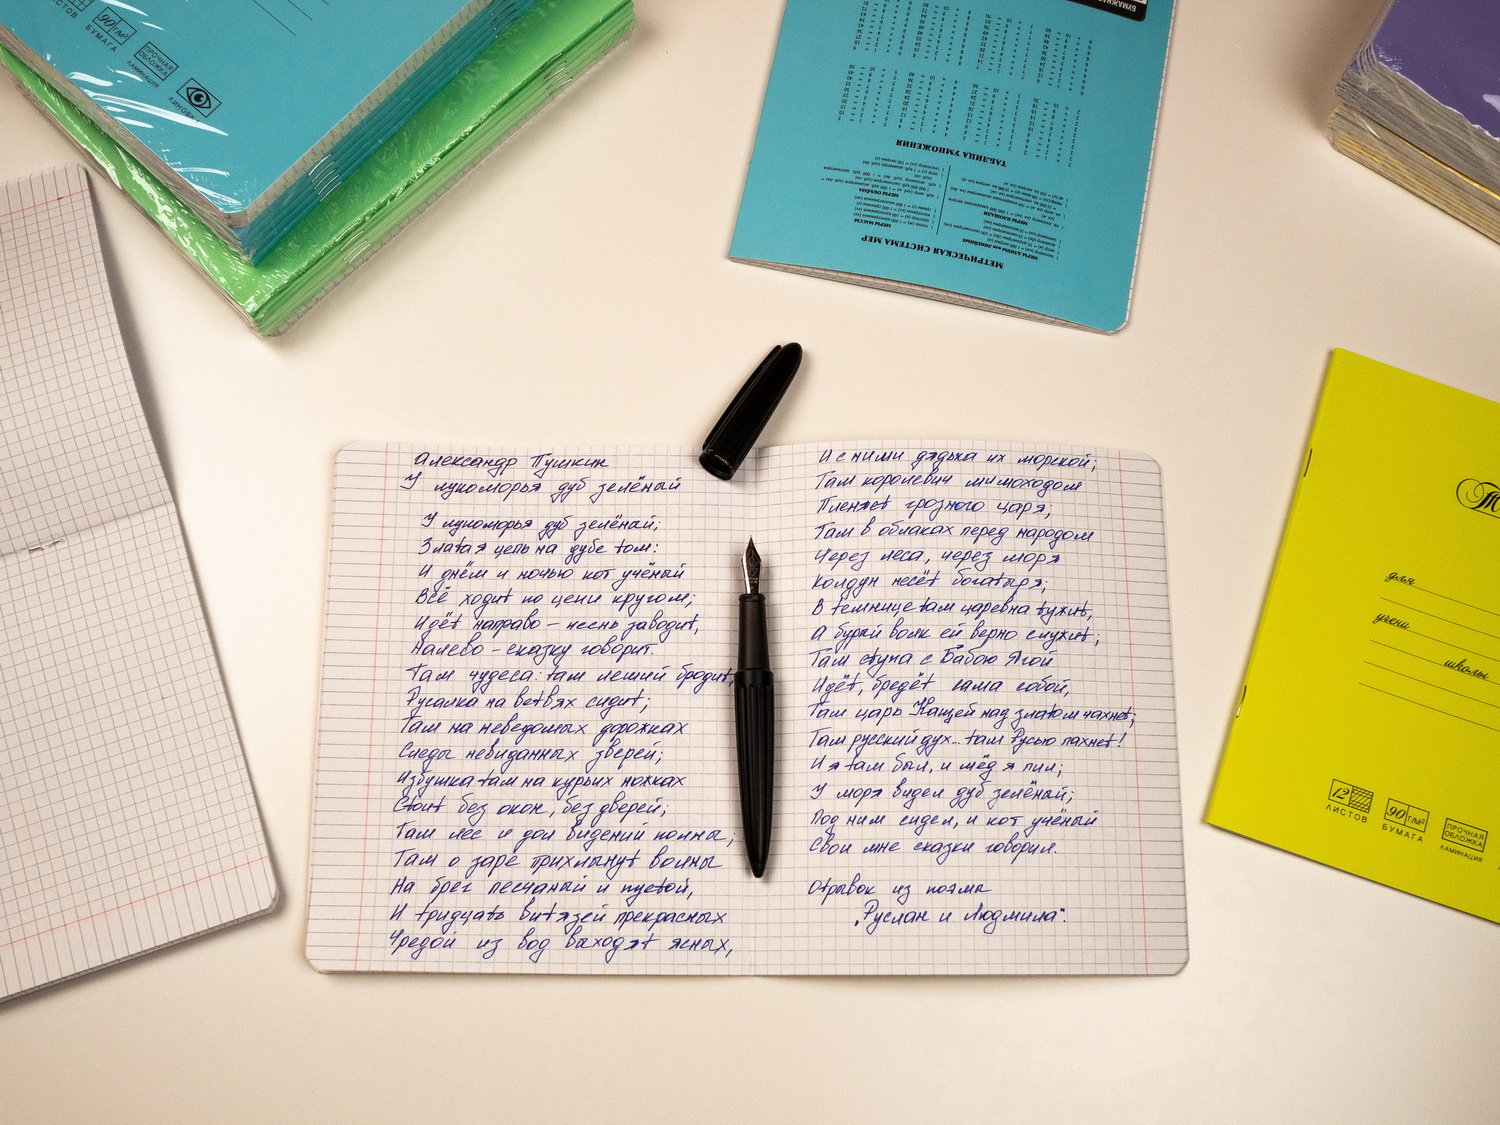 ЛИСТОВ
90 Г/М²
БУМАГА
ПРОЧНАЯ
ОБЛОЖКА
ЛАМИНАЦИЯ
ЛИНОВКА
БУМАЖНАЯ
ТАБЛИЦА УМНОЖЕНИЯ
МЕРЫ МАССЫ
МЕРЫ ОБЪЁМА
МЕРЫ ПЛОЩАДИ
МЕРЫ ДЛИНЫ или ЛИНЕЙНЫЕ
МЕТРИЧЕСКАЯ СИСТЕМА МЕР
Александр Пушкин
У лукоморья дуб зелёный
У лукоморья дуб зелёный;
Златая цепь на дубе том:
И днём и ночью кот учёный
Всё ходит по цепи кругом;
Идёт направо – песнь заводит,
Налево – сказку говорит.
Там чудеса: там леший бродит,
Русалка на ветвях сидит;
Там на неведомых дорожках
Следы невиданных зверей;
Избушка там на курьих ножках
Стоит без окон, без дверей;
Там лес и дол видений полны;
Там о заре прихлынут волны
На брег песчаный и пустой,
И тридцать витязей прекрасных
Чредой из вод выходят ясных,
И с ними дядька их морской;
Там королевич мимоходом
Пленяет грозного царя;
Там в облаках перед народом
Через леса, через моря
Колдун несёт богатыря;
В темнице там царевна тужит,
А бурый волк ей верно служит;
Там ступа с Бабою Ягой
Идёт, бредёт сама собой,
Там царь Кащей над златом чахнет;
Там русский дух... там Русью пахнет!
И я там был, и мёд я пил;
У моря видел дуб зелёный;
Под ним сидел, и кот учёный
Свои мне сказки говорил.
Отрывок из поэмы
„Руслан и Людмила".
для
учени
школы
12
ЛИСТОВ
90 Г/М²
БУМАГА
ПРОЧНАЯ
ОБЛОЖКА
ЛАМИНАЦИЯ